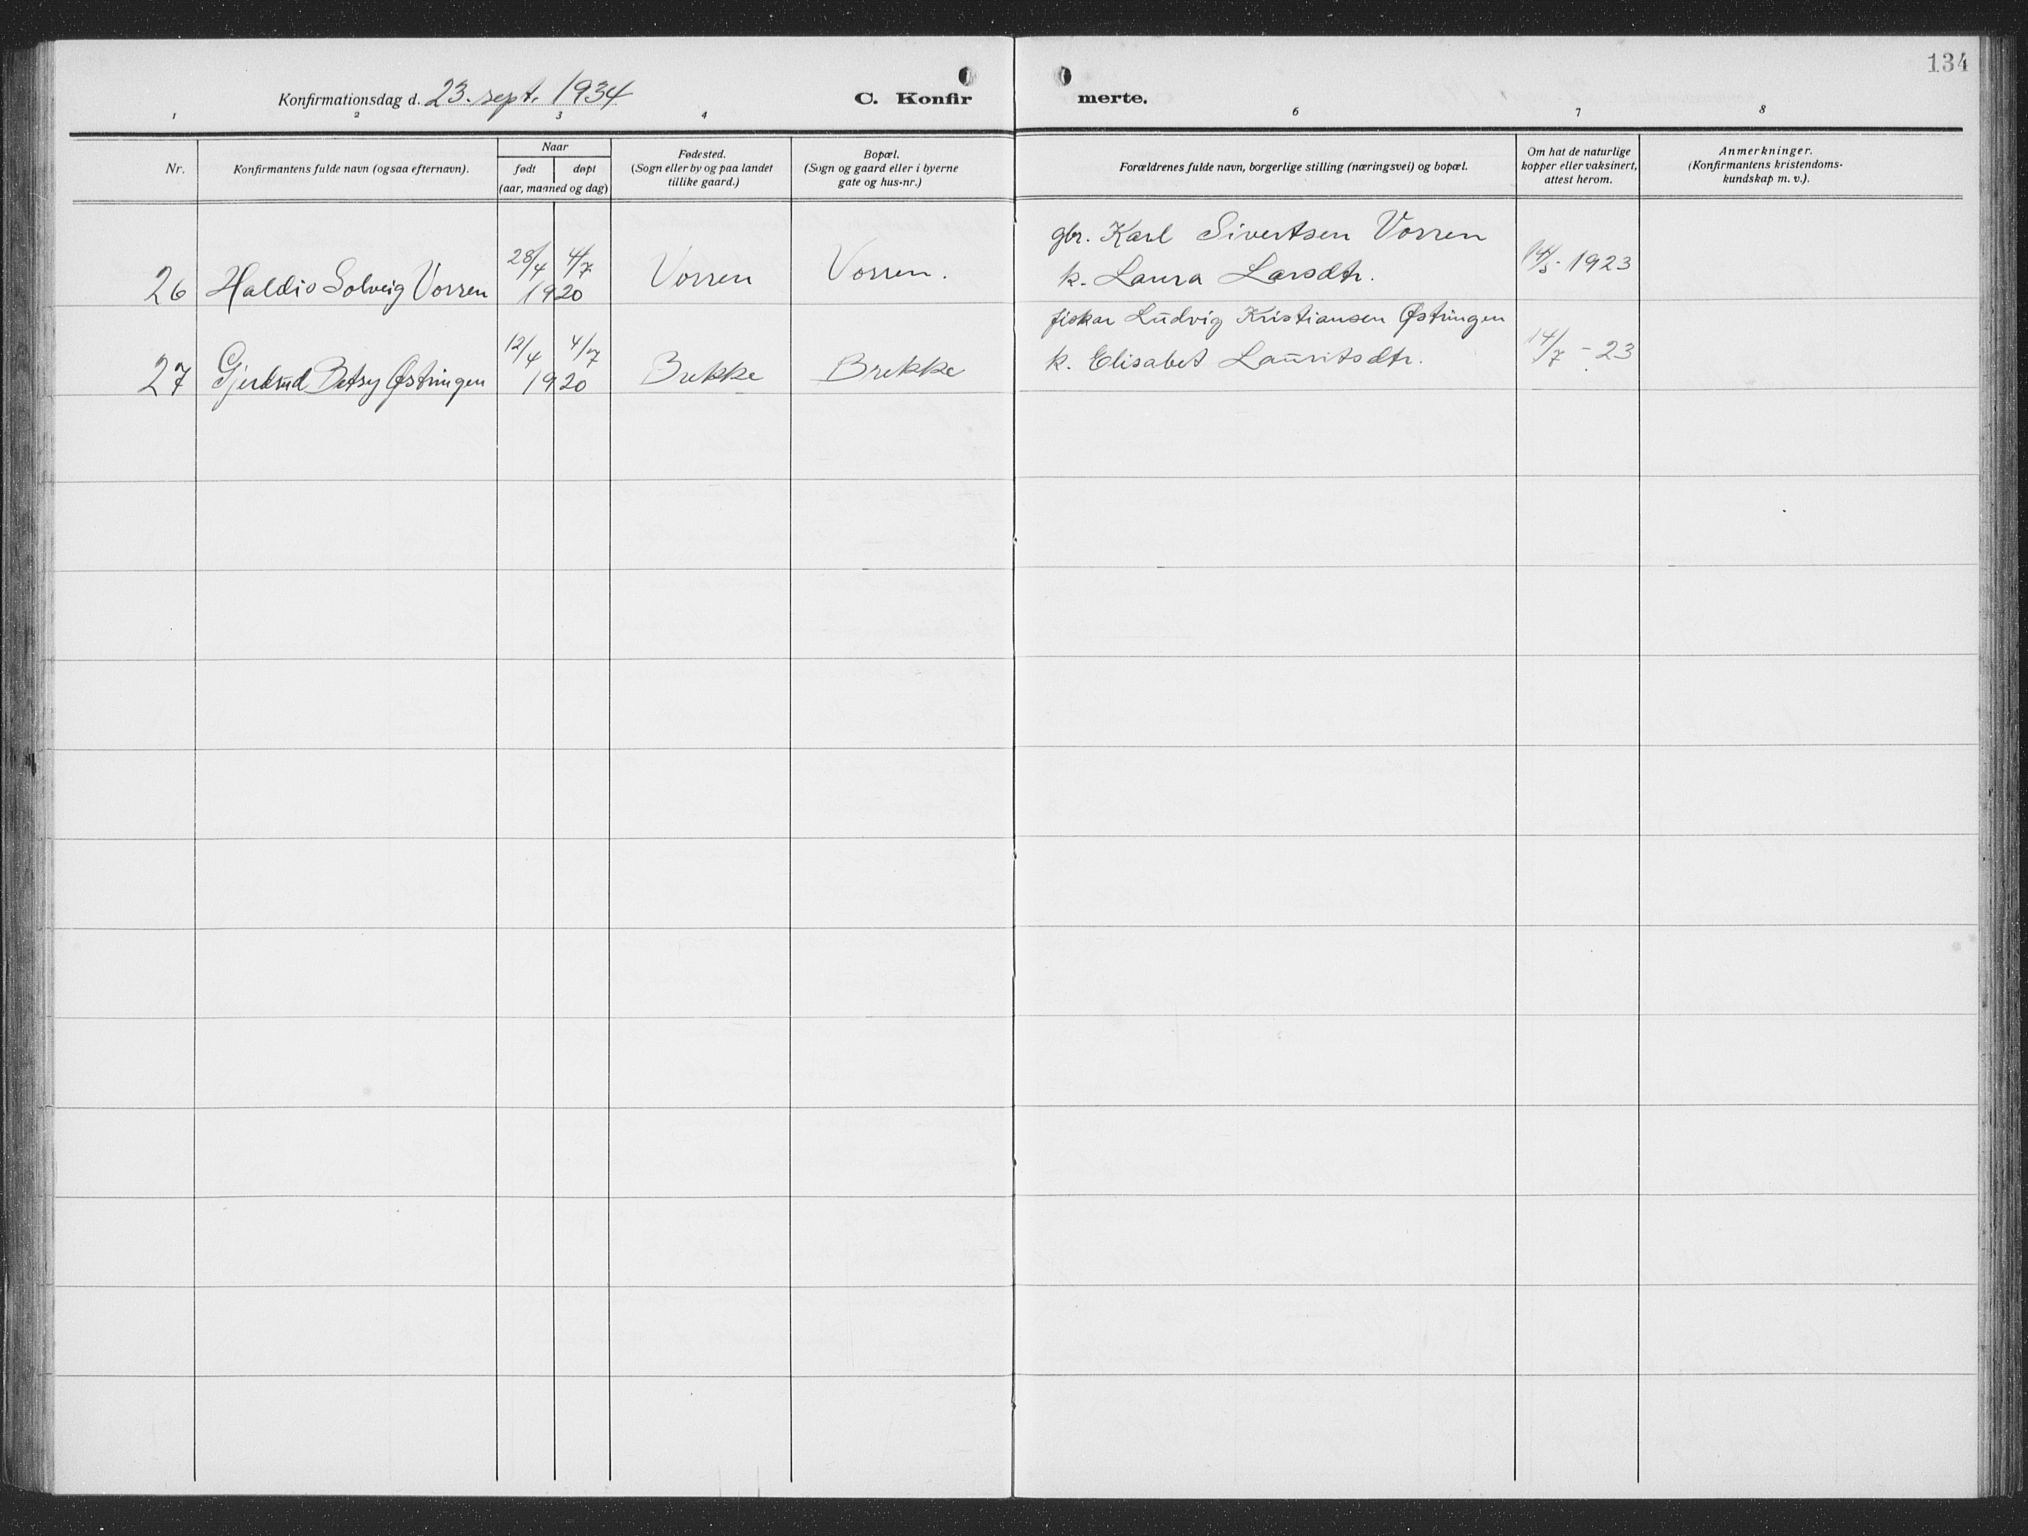 134
Konfirmationsdag d. 23. sept. 1934
C. Konfirmerte.
1 2 3 4 6 7 8
Nr.
Konfirmantens fulde navn (ogsaa efternavn).
Naar
født døpt
(aar, maaned og dag)
Fødested.
(Sogn eller by og paa landet
tillike gaard.)
Bopæl.
(Sogn og gaard eller i byerne
gate og hus-nr.)
Forældrenes fulde navn, borgerlige stilling (næringsvei) og bopæl.
Om hat de naturlige
kopper eller vaksinert,
attest herom.
Anmerkninger.
(Konfirmantens kristendoms-
kundskap m. v.).
26 Haldis Solveig Vorren 28/4 4/7 1920 Vorren Vorren.
gbr. Karl Sivertsen Vorren
k. Laura Larsdtr.
1923
27 Gjertrud Betsy Østringen 12/4 4/7 1920 Brekke Brekke
fiskar Ludvig Kristiansen Østringen
k. Elisabet Lauritsdtr.
14/7 - 23